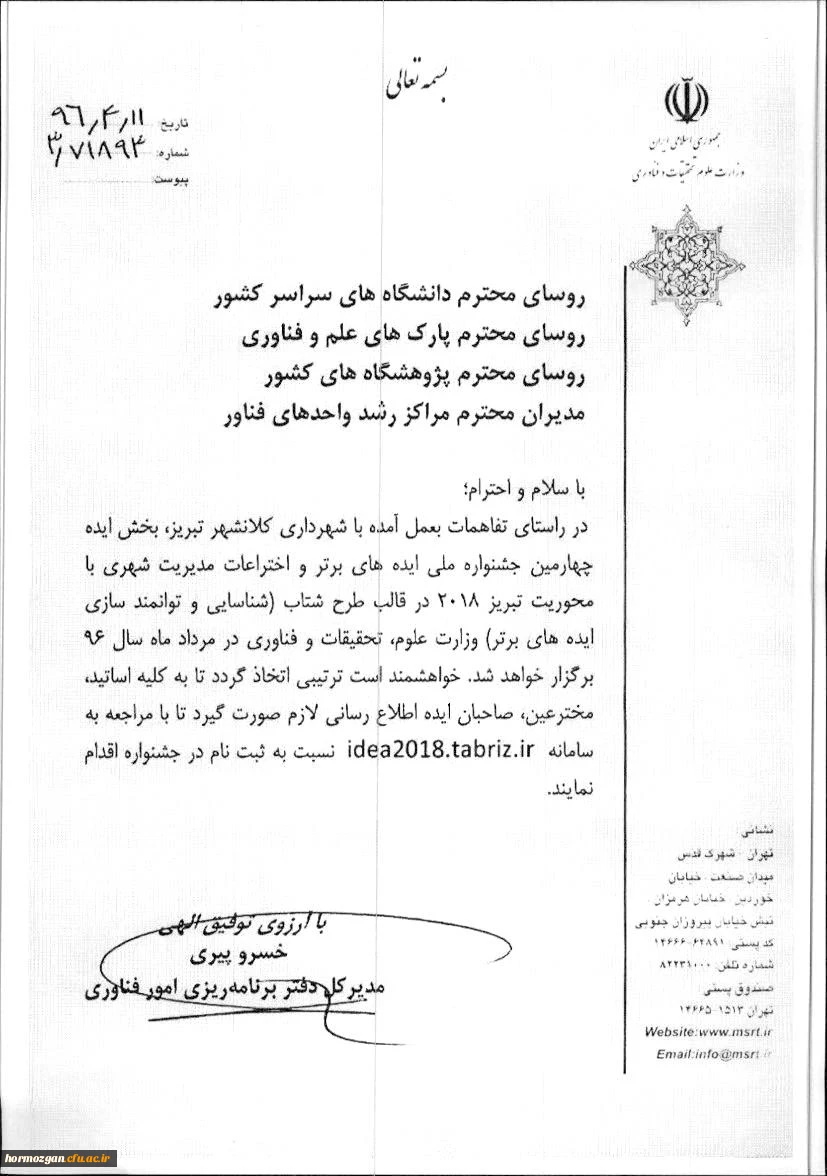 بسمه تعالی
جمهوری اسلامی ایران
وزارت علوم تحقیقات و فناوری
تاریخ: ۹۶٫۴٫۱۱
شماره: ۳٫۷۱۸۹۴
پیوست:
روسای محترم دانشگاه های سراسر کشور
روسای محترم پارک های علم و فناوری
روسای محترم پژوهشگاه های کشور
مدیران محترم مراکز رشد واحدهای فناور
با سلام و احترام؛
در راستای تفاهمات بعمل آمده با شهرداری کلانشهر تبریز، بخش ایده
چهارمین جشنواره ملی ایده های برتر و اختراعات مدیریت شهری با
محوریت تبریز ۲۰۱۸ در قالب طرح شتاب (شناسایی و توانمند سازی
ایده های برتر) وزارت علوم، تحقیقات و فناوری در مرداد ماه سال ۹۶
برگزار خواهد شد. خواهشمند است ترتیبی اتخاذ گردد تا به کلیه اساتید،
مخترعین، صاحبان ایده اطلاع رسانی لازم صورت گیرد تا با مراجعه به
سامانه idea2018.tabriz.ir نسبت به ثبت نام در جشنواره اقدام
نمایند.
با آرزوی توفیق الهی
خسرو پیری
مدیرکل دفتر برنامه‌ریزی امور فناوری
نشانی:
تهران - شهرک قدس
میدان صنعت - خیابان
خوردین - خیابان هرمزان -
نبش خیابان پیروزان جنوبی
کد پستی: ۶۴۸۹۱-۱۴۶۶۶
شماره تلفن: ۸۲۲۳۱۰۰۰
صندوق پستی:
تهران ۱۵۱۳-۱۴۶۶۵
Website:www.msrt.ir
Email:info@msrt.ir
hormozgan.cfu.ac.ir